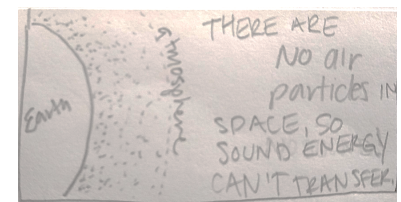 Earth
atmosphere
THERE ARE
No air
particles IN
SPACE, SO
SOUND ENERGY
CAN'T TRANSFER.